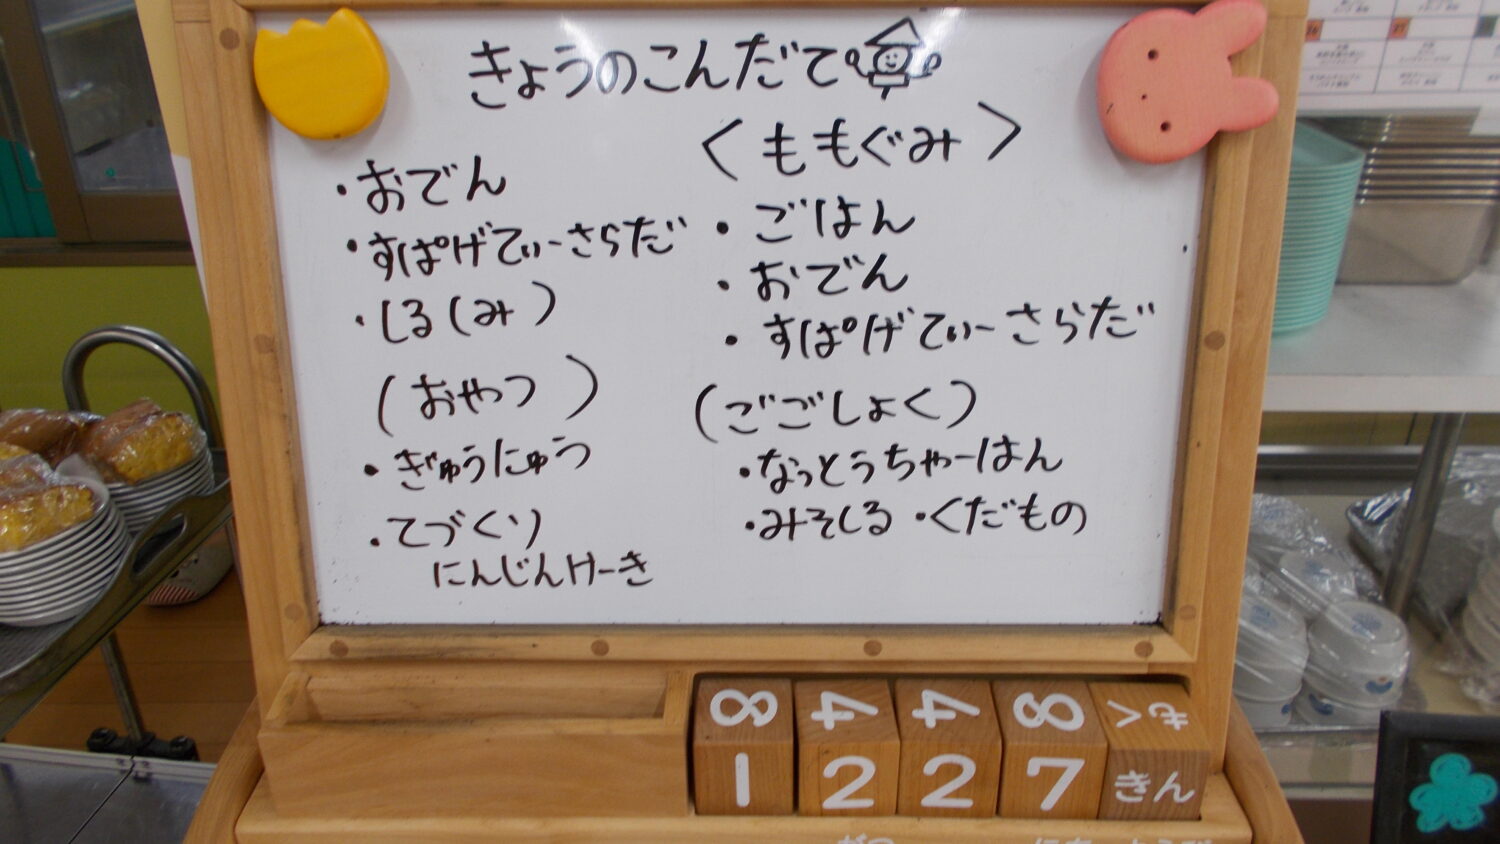 きょうのこんだて
・おでん
・すぱげてぃーさらだ
・しる(み)
(おやつ)
・ぎゅうにゅう
・てづくり
にんじんけーき
<ももぐみ>
・ごはん
・おでん
・すぱげてぃーさらだ
(ごごしょく)
・なっとうちゃーはん
・みそしる ・くだもの
8 4 4 8 もく
1 2 2 7 きん